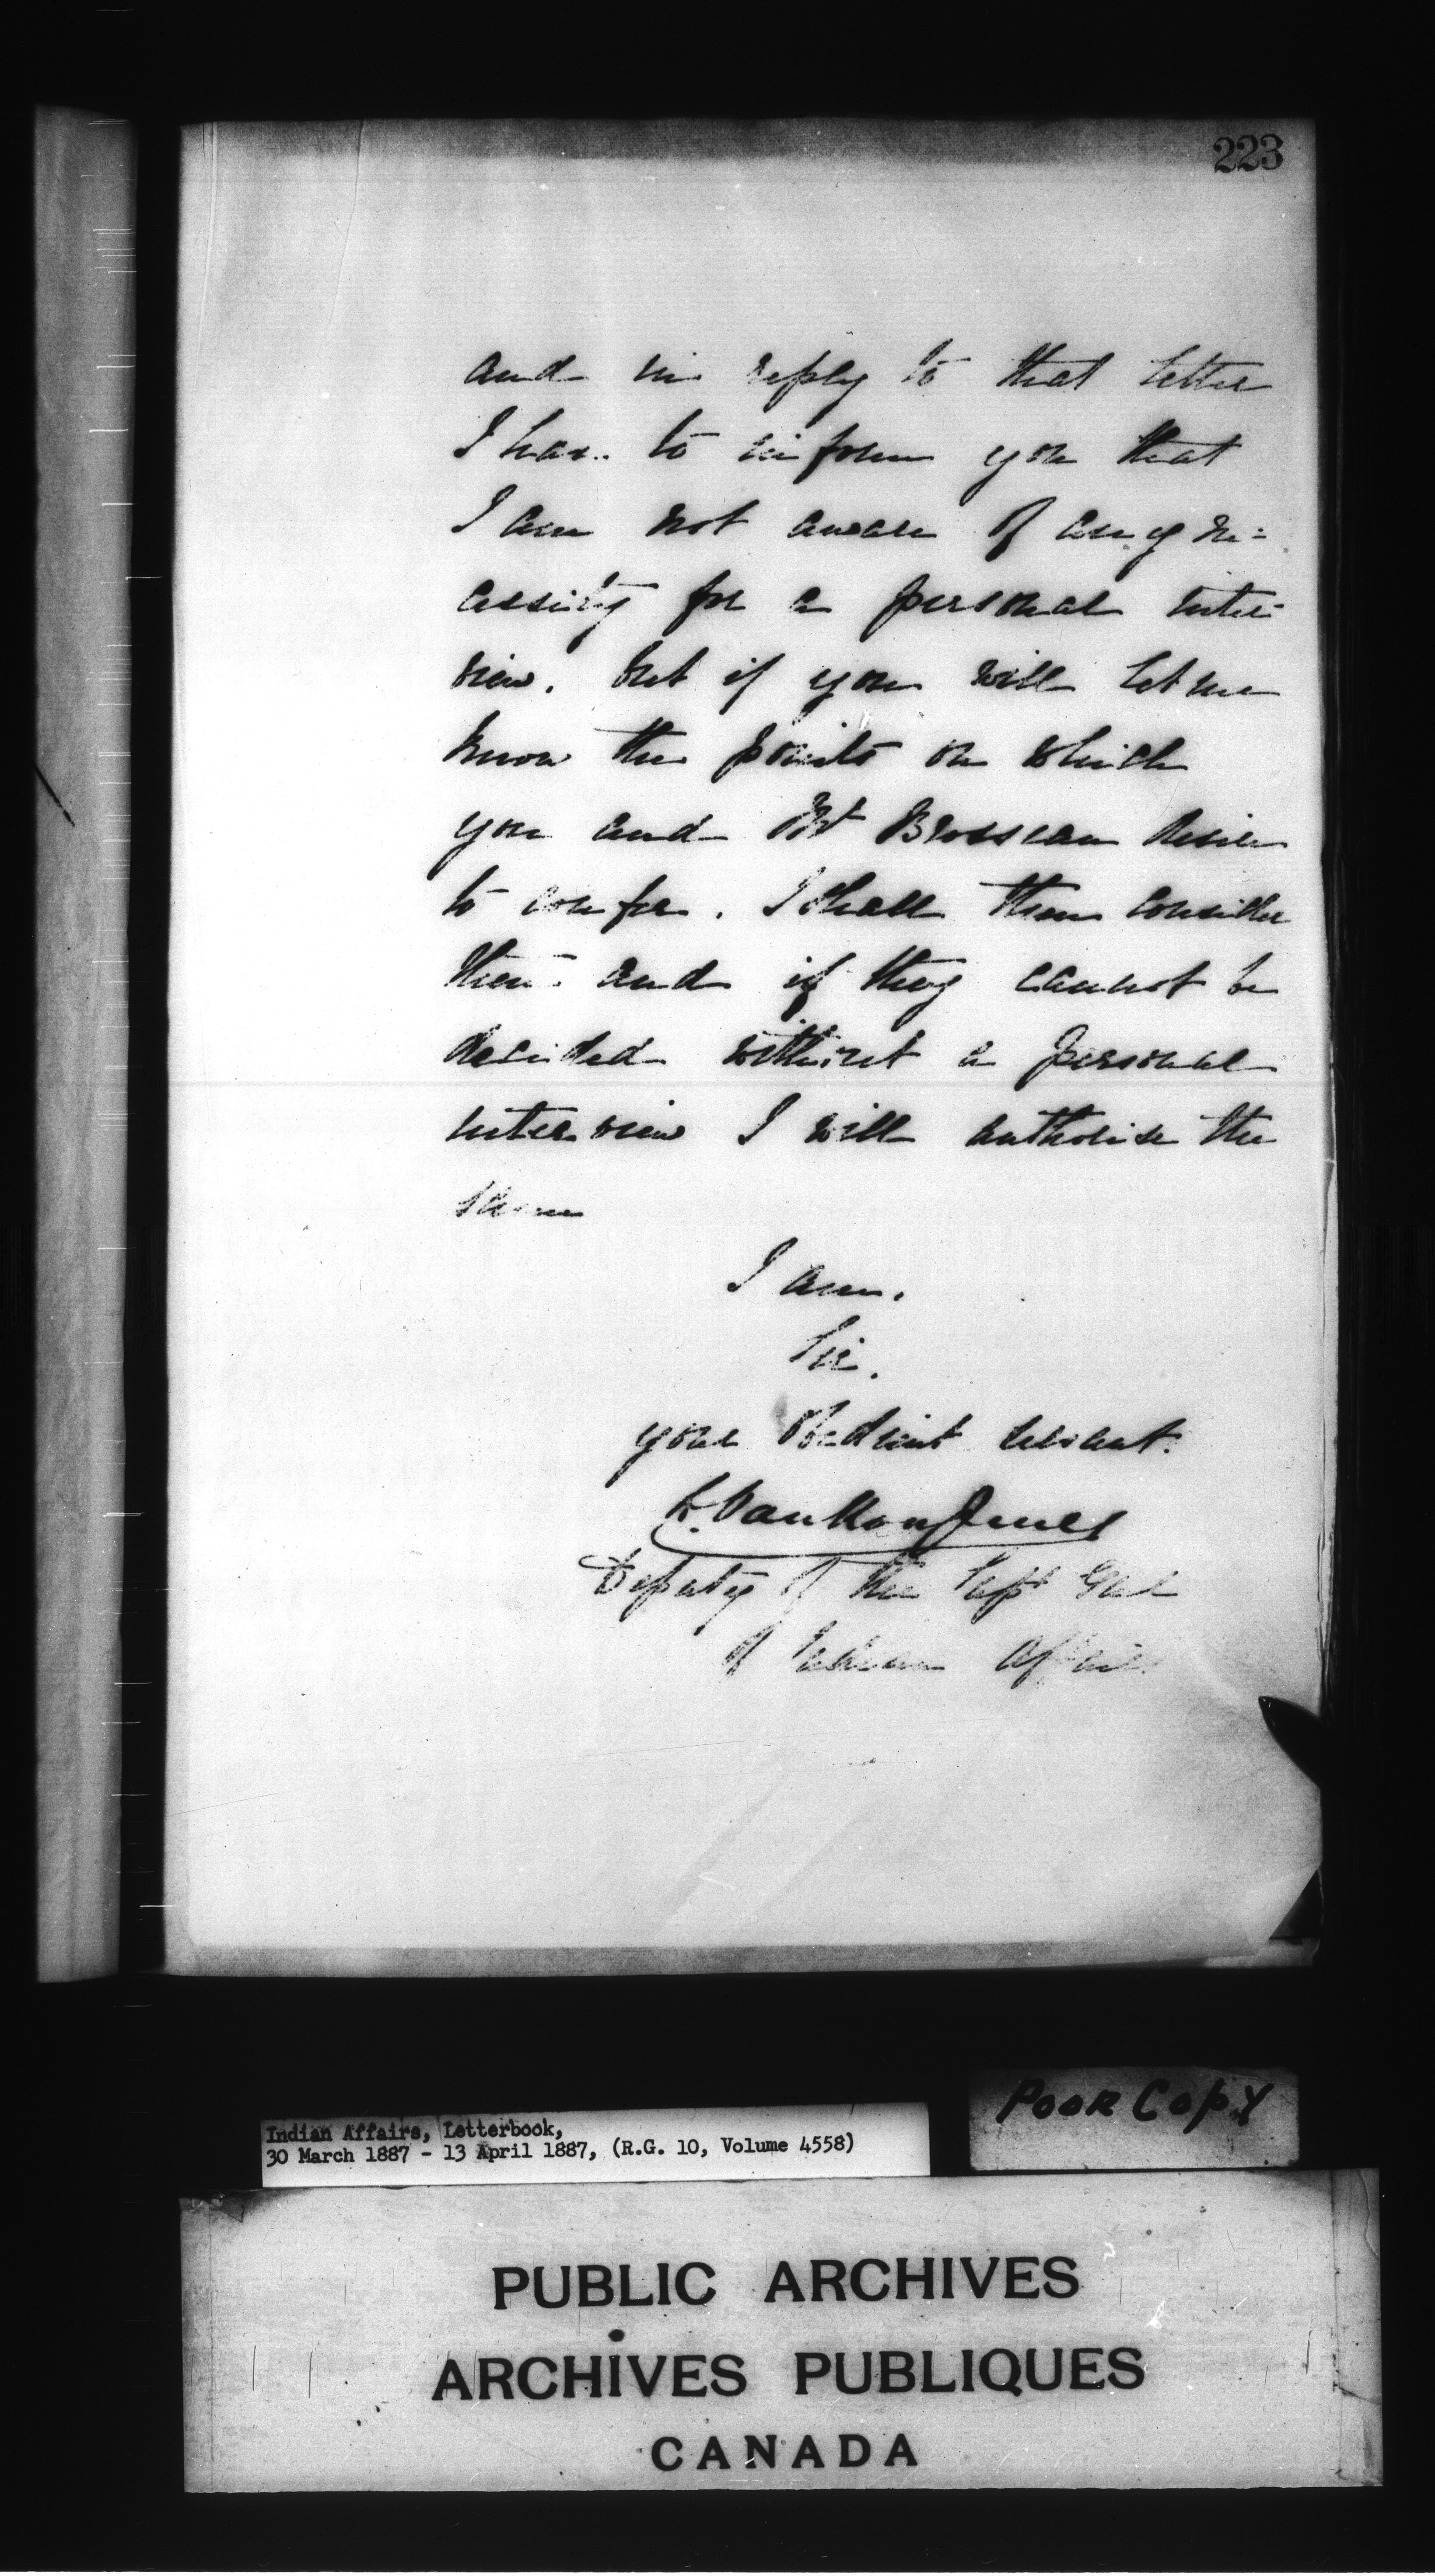 223
and in reply to that letter
I have to inform you that
I am not aware of any ne=
cessity for a personal inter-
view. but if you will let me
know the points on which
you and Mr Brosseau desire
to confer. I shall then consider
them and if they cannot be
decided without a personal
interview I will authorise the
same
I am.
Sir.
your obedient servant.
L. Vankoughnet
Deputy of the Supt Genl
of Indian Affairs.
POOR COPY
Indian Affairs, Letterbook,
30 March 1887 - 13 April 1887, (R.G. 10, Volume 4558)
PUBLIC ARCHIVES
ARCHIVES PUBLIQUES
CANADA